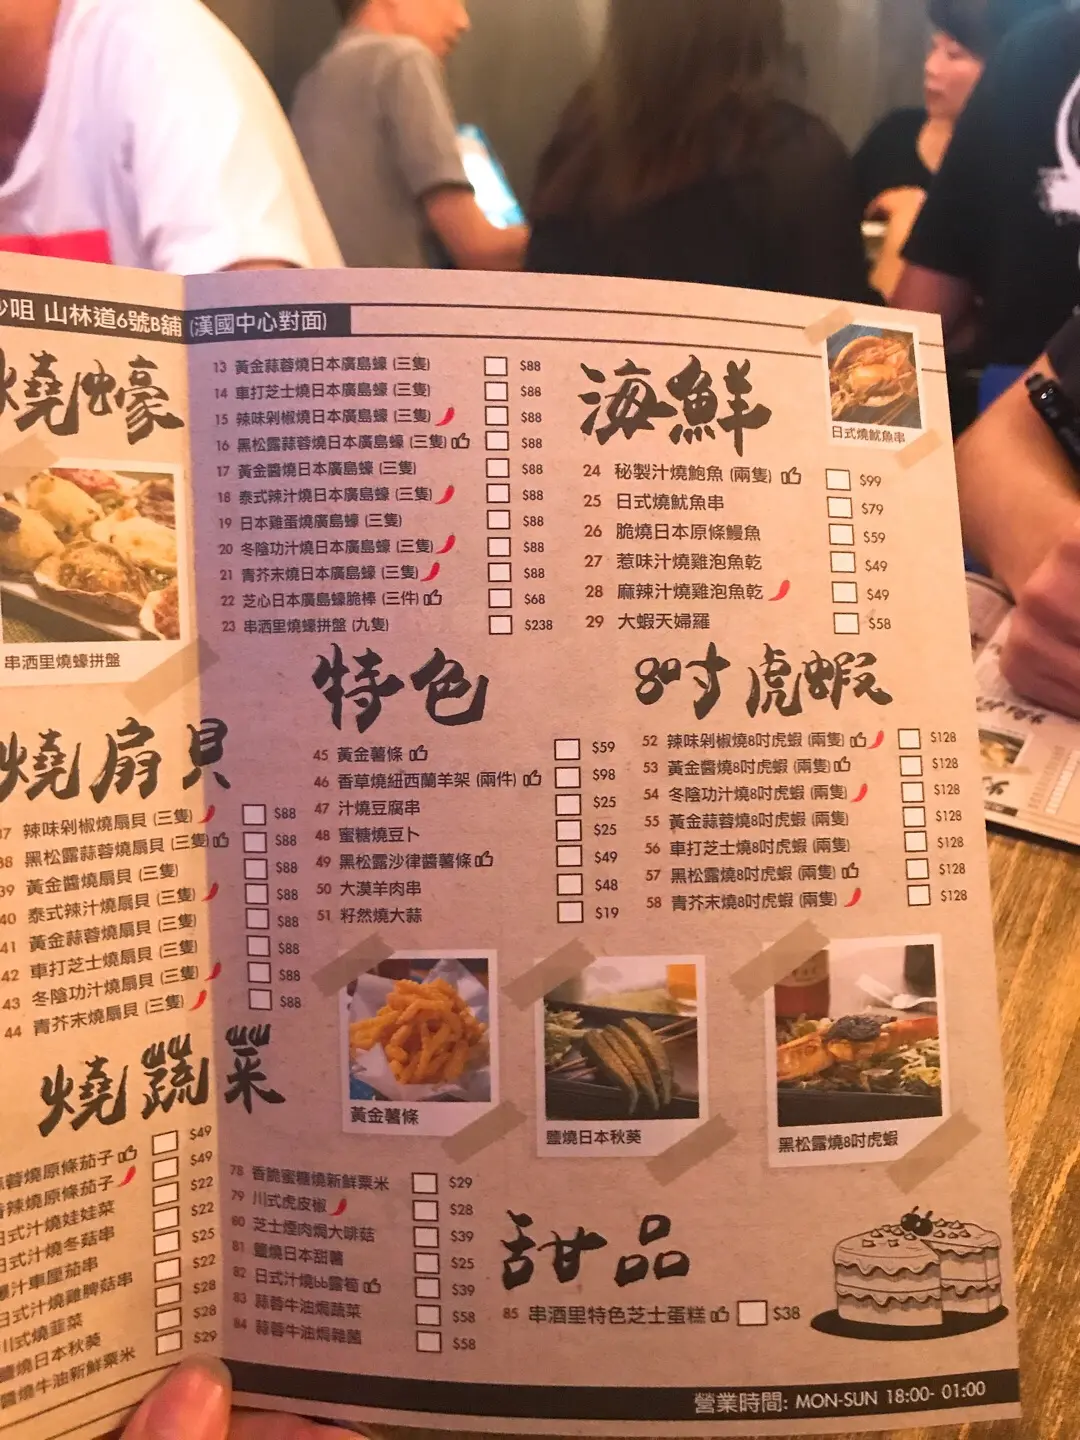 咀 山林道6號B舖 (漢國中心對面)
燒蠔
串洒里燒蠔拼盤
13 黃金蒜蓉燒日本廣島蠔 (三隻) $88
14 車打芝士燒日本廣島蠔 (三隻) $88
15 辣味剁椒燒日本廣島蠔 (三隻) $88
16 黑松露蒜蓉燒日本廣島蠔 (三隻) $88
17 黃金醬燒日本廣島蠔 (三隻) $88
18 泰式辣汁燒日本廣島蠔 (三隻) $88
19 日本雞蛋燒廣島蠔 (三隻) $88
20 冬陰功汁燒日本廣島蠔 (三隻) $88
21 青芥末燒日本廣島蠔 (三隻) $88
22 芝心日本廣島蠔脆棒 (三件) $68
23 串洒里燒蠔拼盤 (九隻) $238
海鮮
日式燒魷魚串
24 秘製汁燒鮑魚 (兩隻) $99
25 日式燒魷魚串 $79
26 脆燒日本原條鰻魚 $59
27 惹味汁燒雞泡魚乾 $49
28 麻辣汁燒雞泡魚乾 $49
29 大蝦天婦羅 $58
燒扇貝
37 辣味剁椒燒扇貝 (三隻) $88
38 黑松露蒜蓉燒扇貝 (三隻) $88
39 黃金醬燒扇貝 (三隻) $88
40 泰式辣汁燒扇貝 (三隻) $88
41 黃金蒜蓉燒扇貝 (三隻) $88
42 車打芝士燒扇貝 (三隻) $88
43 冬陰功汁燒扇貝 (三隻) $88
44 青芥末燒扇貝 (三隻) $88
特色
45 黃金薯條 $59
46 香草燒紐西蘭羊架 (兩件) $98
47 汁燒豆腐串 $25
48 蜜糖燒豆卜 $25
49 黑松露沙律醬薯條 $49
50 大漠羊肉串 $48
51 籽然燒大蒜 $19
8吋虎蝦
52 辣味剁椒燒8吋虎蝦 (兩隻) $128
53 黃金醬燒8吋虎蝦 (兩隻) $128
54 冬陰功汁燒8吋虎蝦 (兩隻) $128
55 黃金蒜蓉燒8吋虎蝦 (兩隻) $128
56 車打芝士燒8吋虎蝦 (兩隻) $128
57 黑松露燒8吋虎蝦 (兩隻) $128
58 青芥末燒8吋虎蝦 (兩隻) $128
黃金薯條
鹽燒日本秋葵
黑松露燒8吋虎蝦
燒蔬菜
蒜蓉燒原條茄子 $49
香辣燒原條茄子 $49
日式汁燒娃娃菜 $22
日式汁燒冬菇串 $22
爆汁車厘茄串 $25
日式汁燒雞脾菇串 $22
川式燒韮菜 $28
鹽燒日本秋葵 $28
鹽燒牛油新鮮粟米 $29
78 香脆蜜糖燒新鮮粟米 $29
79 川式虎皮椒 $28
80 芝士煙肉焗大啡菇 $39
81 鹽燒日本甜薯 $25
82 日式汁燒bb露筍 $39
83 蒜蓉牛油焗蔬菜 $58
84 蒜蓉牛油焗雜菌 $58
甜品
85 串酒里特色芝士蛋糕 $38
營業時間: MON-SUN 18:00- 01:00